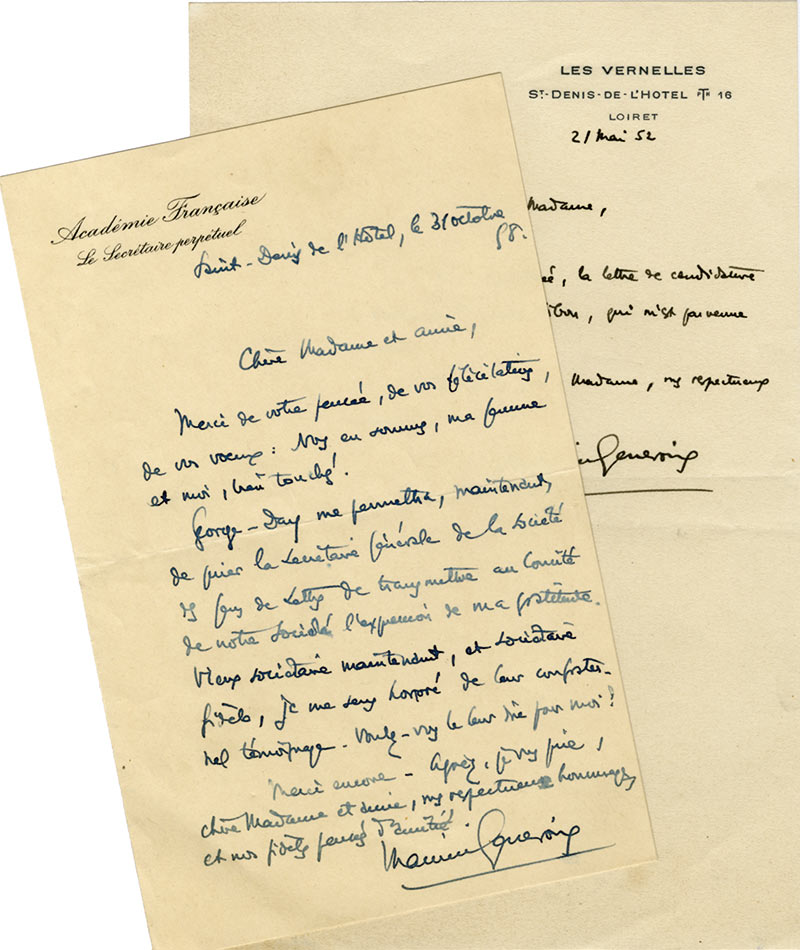 LES VERNELLES
ST-DENIS-DE-L'HOTEL PTH 16
LOIRET
21 Mai 52
Madame,
la lettre de candidature
qui m'est parvenue
Madame, mes respectueux
Genevoix
Académie Française
Le Secrétaire perpétuel
Saint-Denis de l'Hôtel, le 31 octobre
58.
Chère Madame et amie,
Merci de votre pensée, de vos félicitations,
de vos voeux : Nous en sommes, ma femme
et moi, bien touchés.
George-Day me permettra, maintenant,
de prier la Secrétaire générale de la Société
des Gens de Lettres de transmettre au Comité
de notre Société l'expression de ma gratitude.
Vieux sociétaire maintenant, et sociétaire
fidèle, je me sens honoré de leur confrater-
nel témoignage. Voulez-vous le leur dire pour moi?
Merci encore. Agréez, je vous prie,
chère Madame et amie, mes respectueux hommages
et mes fidèles pensées d'amitié.
Maurice Genevoix